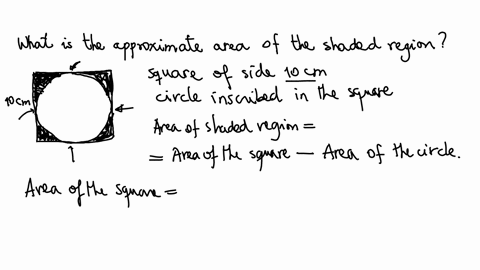 What is the approximate area of the shaded region?
10 cm
square of side 10 cm
circle inscribed in the square
Area of shaded region =
= Area of the square — Area of the circle.
Area of the square =